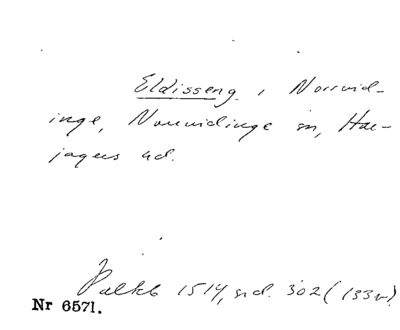 Eldisseng, Norrvid-
inge, Norrvidinge sn, Har-
jagers hd.
Palkb 1514, sid. 302 (133v).
Nr 6571.